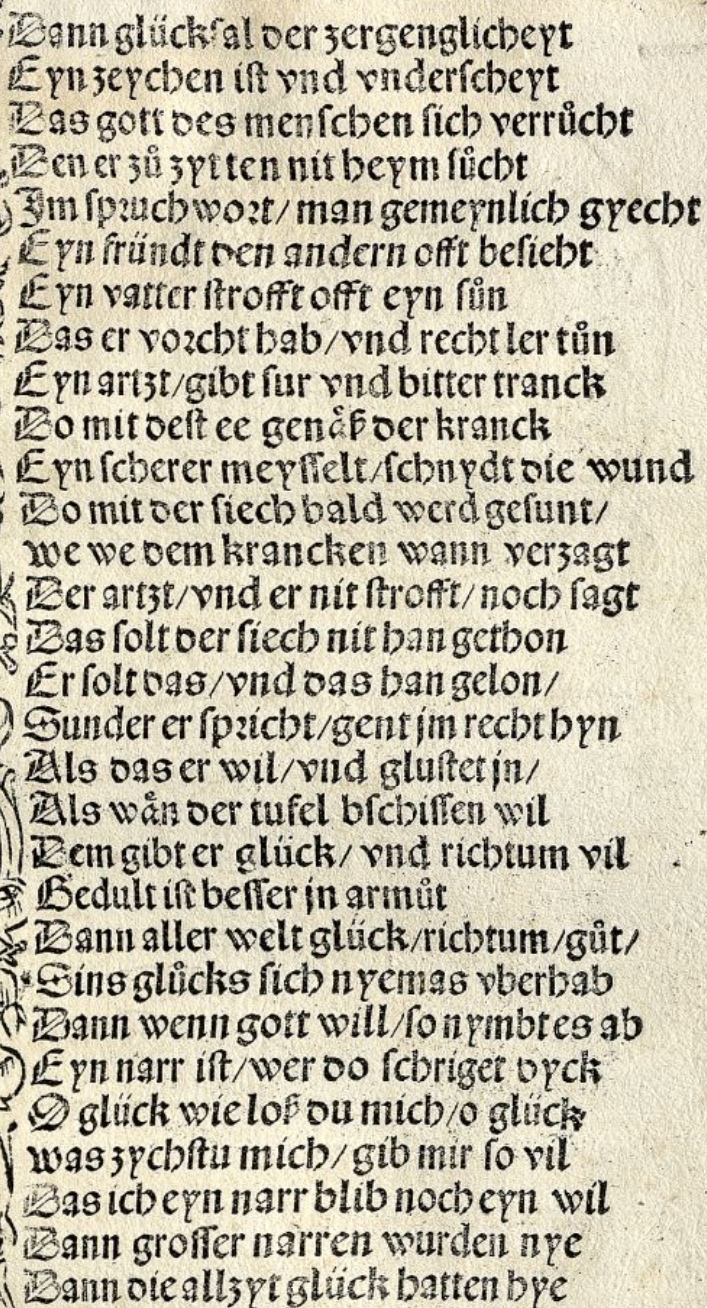 Dann glücksal der zergenglicheyt
Eyn zeychen ist vnd vnderscheyt
Das gott des menschen sich verrůcht
Den er zů zytten nit heym sůcht
Im spruchwort/ man gemeynlich gyecht
Eyn fründt den andern offt besieht
Eyn vatter strofft offt eyn sůn
Das er vorcht hab/vnd recht ler tůn
Eyn artzt/gibt sur vnd bitter tranck
Do mit dest ee genåß der kranck
Eyn scherer meysselt/schnydt die wund
Do mit der siech bald werd gesunt/
we we dem krancken wann verzagt
Der artzt/vnd er nit strofft/noch sagt
Das solt der siech nit han gethon
Er solt das/vnd das han gelon/
Sunder er spricht/gent jm recht hyn
Als das er wil/vnd glustet jn/
Als wån der tufel bschissen wil
Dem gibt er glück/ vnd richtum vil
Gedult ist besser jn armůt
Dann aller welt glück/richtum/gůt/
Sins glůcks sich nyemas vberhab
Dann wenn gott will/so nymbt es ab
Eyn narr ist/wer do schriget dyck
O glück wie loß du mich/o glück
was zychstu mich/gib mir so vil
Das ich eyn narr blib noch eyn wil
Dann grosser narren wurden nye
Dann die allzyt glück hatten hye